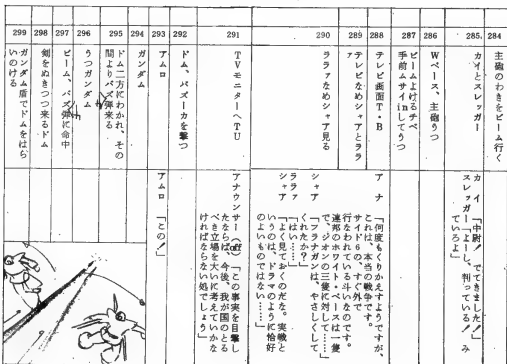 284
主砲のわきをビーム行く
285.
カイとスレッガー
カイ「中尉!でてきました!」
スレッガー「よーし、判っている!み
ていろよ」
286
Wベース、主砲うつ
287
ビームよけるチベ
手前ムサイinしてうつ
288
テレビ画面T・B
アナ「何度もくりかえすようですが、
これは、本当の戦争です。
サイド6の、すぐ外で
行なわれている斗いなのです。
連邦のホワイト・ベースは一隻
で、ジオンの三隻に対して……」
289
テレビなめシャアとララ
ァ
シャア「フラナガンは、やさしくして
くれたか?」
ララァ「はい……」
290
ララァなめシャア見る
シャア「よく見ておくのだな。実戦と
いうのは、ドラマのように恰好
のよいものではない……」
291
TVモニターへTU
アナウンサー(off)「この事実を目撃し
たならば、今後、我が国のとる
べき立場を大いに考えていかな
ければならない処でしょう」
292
ドム、バズーカを撃つ
293
アムロ
アムロ「この!」
294
ガンダム
295
ドム二方にわかれ、その
間よりバズ弾来る
296
うつガンダム
297
ビーム、バズ弾に命中
298
剣をぬきつつ来るドム
299
ガンダム盾でドムをはら
いのける